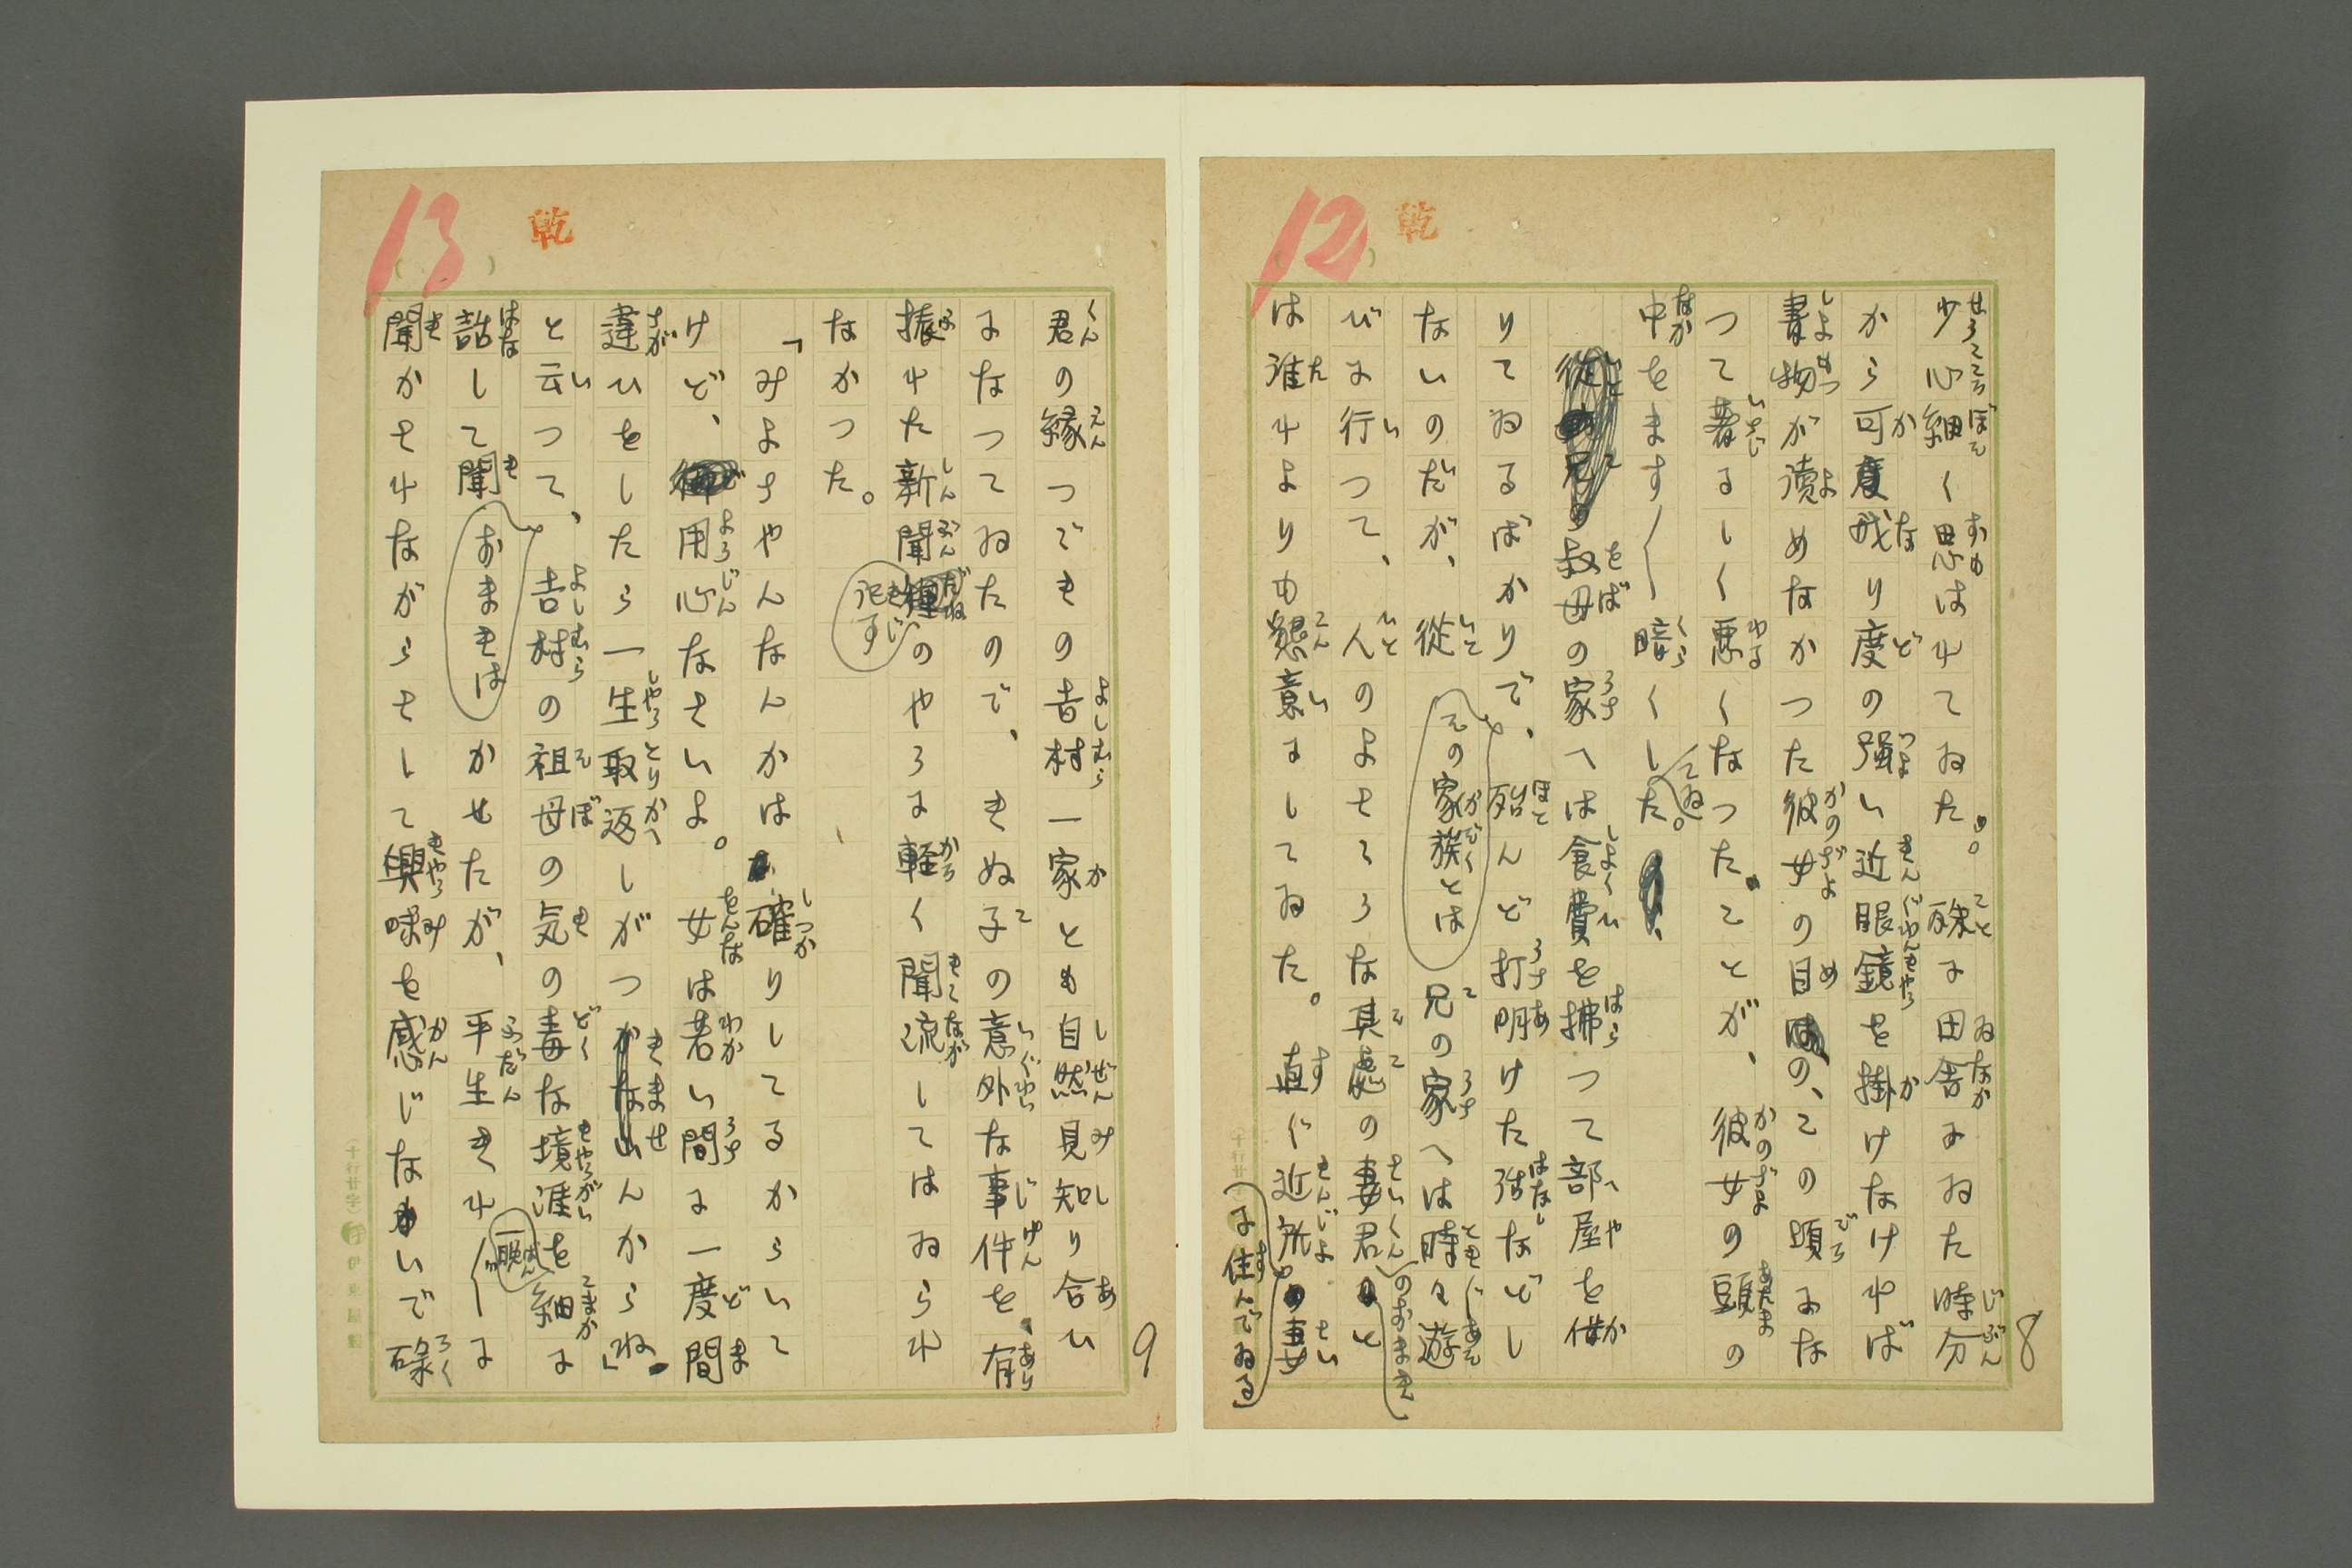 12
乾
8
少心細く思はれてゐた。殊に田舎にゐた時分
から可成り度の強い近眼鏡を掛けなければ
書物が読めなかつた彼女の目の、この頃にな
つて著るしく悪くなつたことが、彼女の頭の
中をます〳〵暗くしてゐた。
叔母の家へは食費を拂つて部屋を借
りてゐるばかりで、殆んど打明けた話などし
ないのだが、その家族とは従兄の家へは時々遊
びに行つて、人のよささうな其處の妻君のおまきと
は誰れよりも懇意にしてゐた。直ぐ近所に住んでゐる妻
13
乾
9
君の縁つづきの吉村一家とも自然見知り合ひ
になつてゐたので、きぬ子の意外な事件を、有
振れた新聞記事のやうに軽く聞流してはゐられ
なかつた。
「みよちやんなんかは確りしてるからいゝ
けど、用心なさいよ。女は若い間に一度間
違ひをしたら一生取返しがつきませんからね」
と云つて、吉村の祖母の気の毒な境涯を細に
話して聞かせたが、おまきは平生きれ〴〵に
聞かされながらさして興味を感じないで碌
一晩